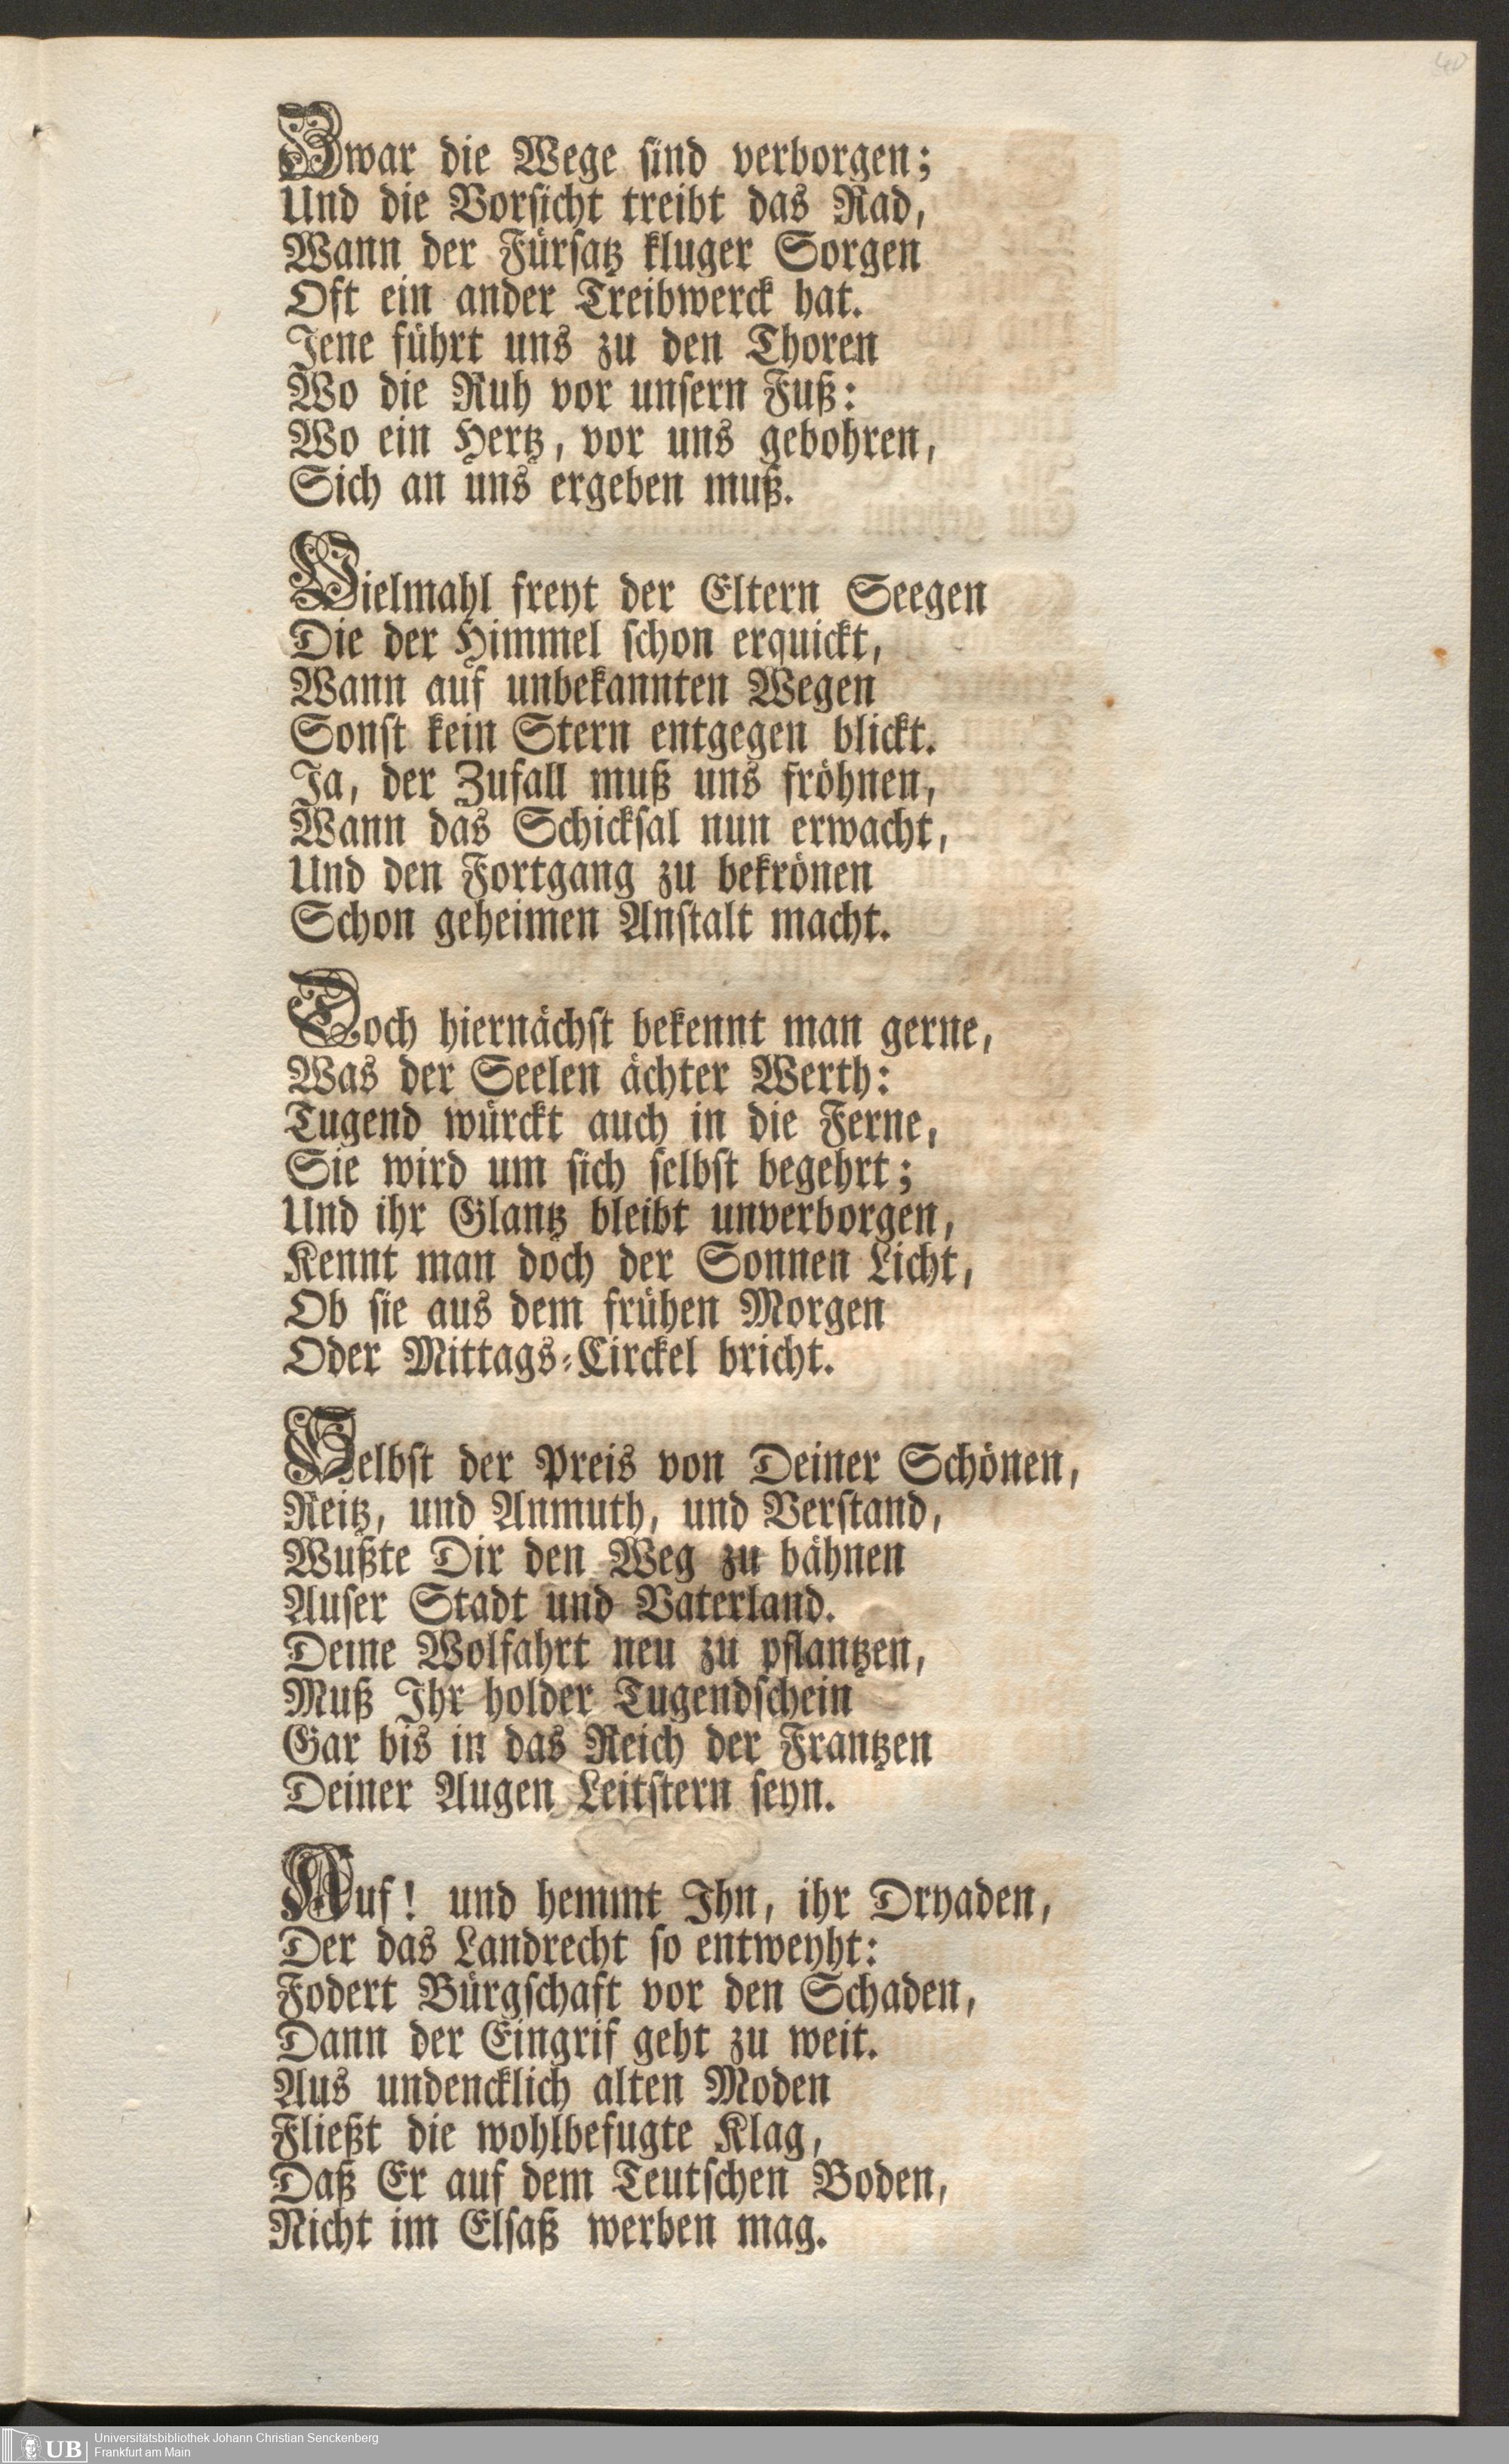 Zwar die Wege sind verborgen;
Und die Vorsicht treibt das Rad,
Wann der Fürsatz kluger Sorgen
Oft ein ander Treibwerck hat.
Jene führt uns zu den Thoren
Wo die Ruh vor unsern Fuß:
Wo ein Hertz, vor uns gebohren,
Sich an uns ergeben muß.
Vielmahl freyt der Eltern Seegen
Die der Himmel schon erquickt,
Wann auf unbekannten Wegen
Sonst kein Stern entgegen blickt.
Ja, der Zufall muß uns fröhnen,
Wann das Schicksal nun erwacht,
Und den Fortgang zu bekrönen
Schon geheimen Anstalt macht.
Doch hiernächst bekennt man gerne,
Was der Seelen ächter Werth:
Tugend würckt auch in die Ferne,
Sie wird um sich selbst begehrt;
Und ihr Glantz bleibt unverborgen,
Kennt man doch der Sonnen Licht,
Ob sie aus dem frühen Morgen
Oder Mittags-Circkel bricht.
Selbst der Preis von Deiner Schönen,
Reitz, und Anmuth, und Verstand,
Wußte Dir den Weg zu bähnen
Auser Stadt und Vaterland.
Deine Wolfahrt neu zu pflantzen,
Muß Ihr holder Tugendschein
Gar bis in das Reich der Frantzen
Deiner Augen Leitstern seyn.
Auf! und hemmt Ihn, ihr Dryaden,
Der das Landrecht so entweyht:
Fodert Bürgschaft vor den Schaden,
Dann der Eingrif geht zu weit.
Aus undencklich alten Moden
Fließt die wohlbefugte Klag,
Daß Er auf dem Teutschen Boden,
Nicht im Elsaß werben mag.
UB
Universitätsbibliothek Johann Christian Senckenberg
Frankfurt am Main